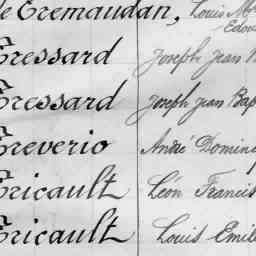 de Tremaudan, Louis M
Edou
Tressard Joseph Jean B
Tressard Joseph Jean Bap
Treverio André Doming
Tricault Léon Francis
Tricault Louis Emil